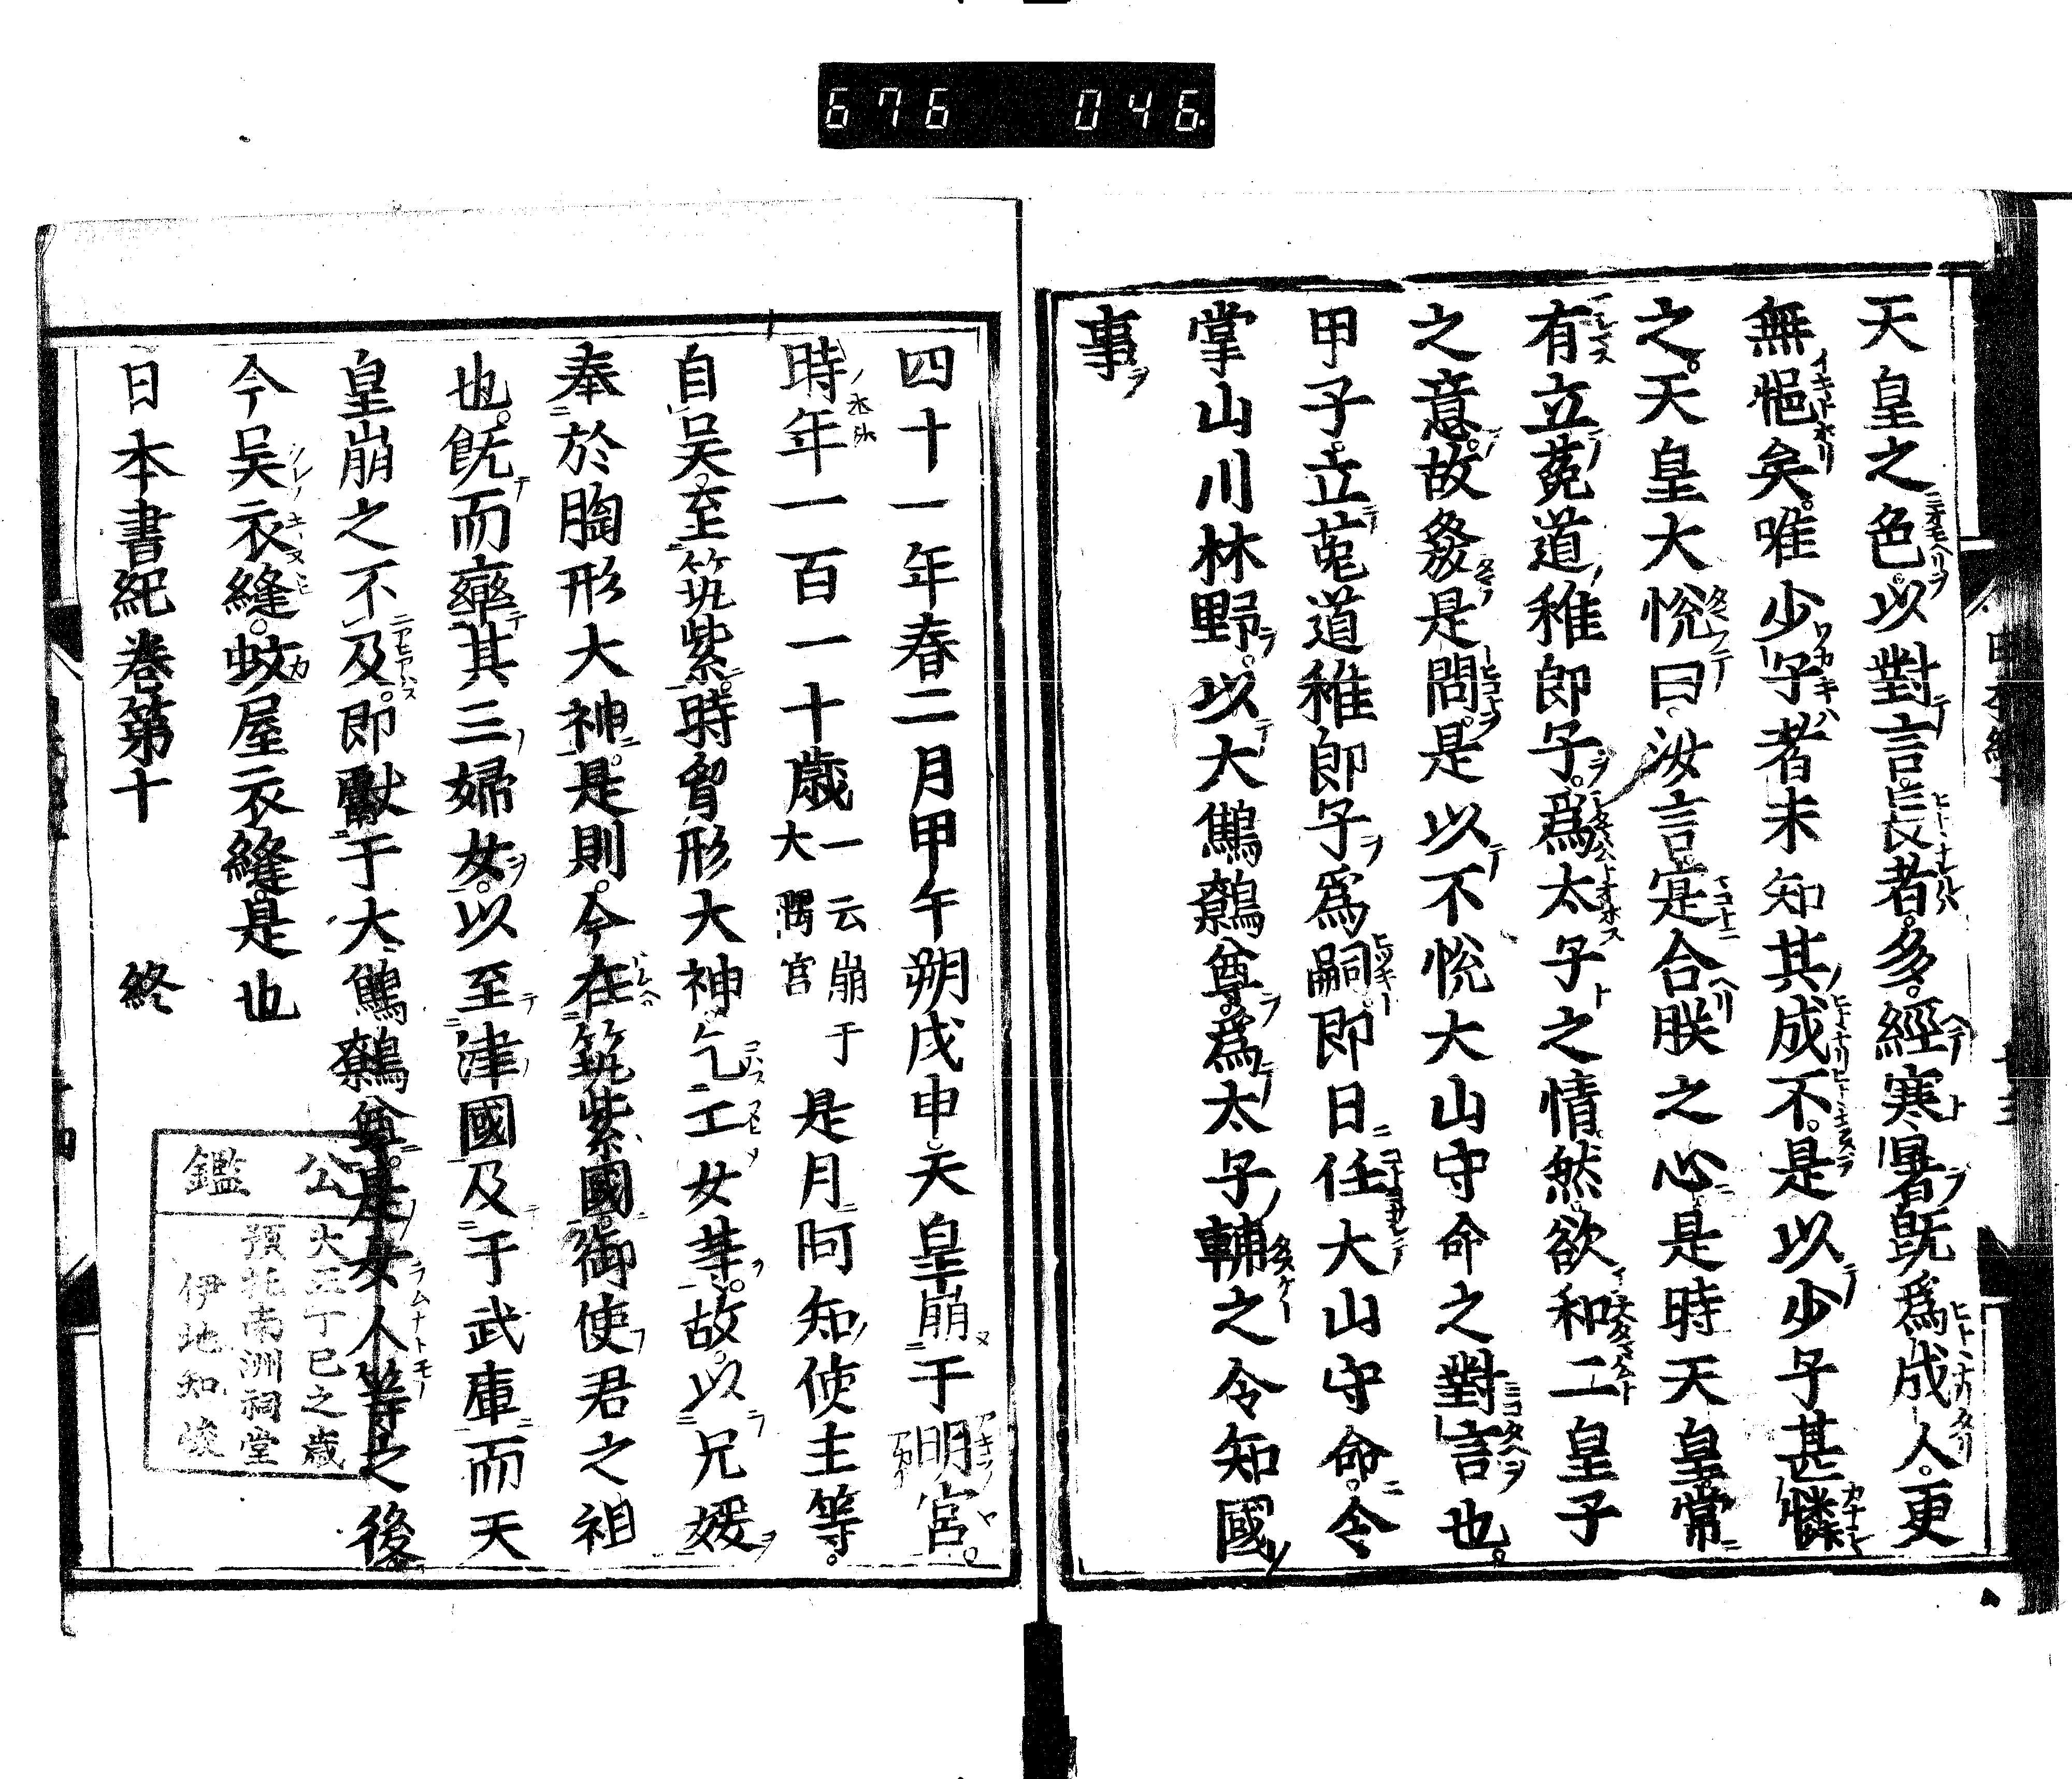 676 046
天皇之色以對言長者多經寒暑既爲成人更
無悒矣唯少子者未知其成不是以少子甚憐
之天皇大悅曰汝言寔合朕之心是時天皇常
有立菟道稚郎子爲太子之情然欲和二皇子
之意故發是問是以不悅大山守命之對言也
甲子立菟道稚郎子爲嗣即日任大山守命令
掌山川林野以大鷦鷯尊爲太子輔之令知國
事
四十一年春二月甲午朔戊申天皇崩于明宮
時年一百一十歳一云崩于大隅宮是月阿知使主等
自吳至筑紫時胷形大神乞工女等故以兄媛
奉於胸形大神是則今在筑紫國御使君之祖
也旣而率其三婦女以至津國及于武庫而天
皇崩之不及即獻于大鷦鷯尊是女人等之後
今吳衣縫蚊屋衣縫是也
日本書紀卷第十 終
公鑑
大正丁巳之歳
預托南洲祠堂
伊地知峻